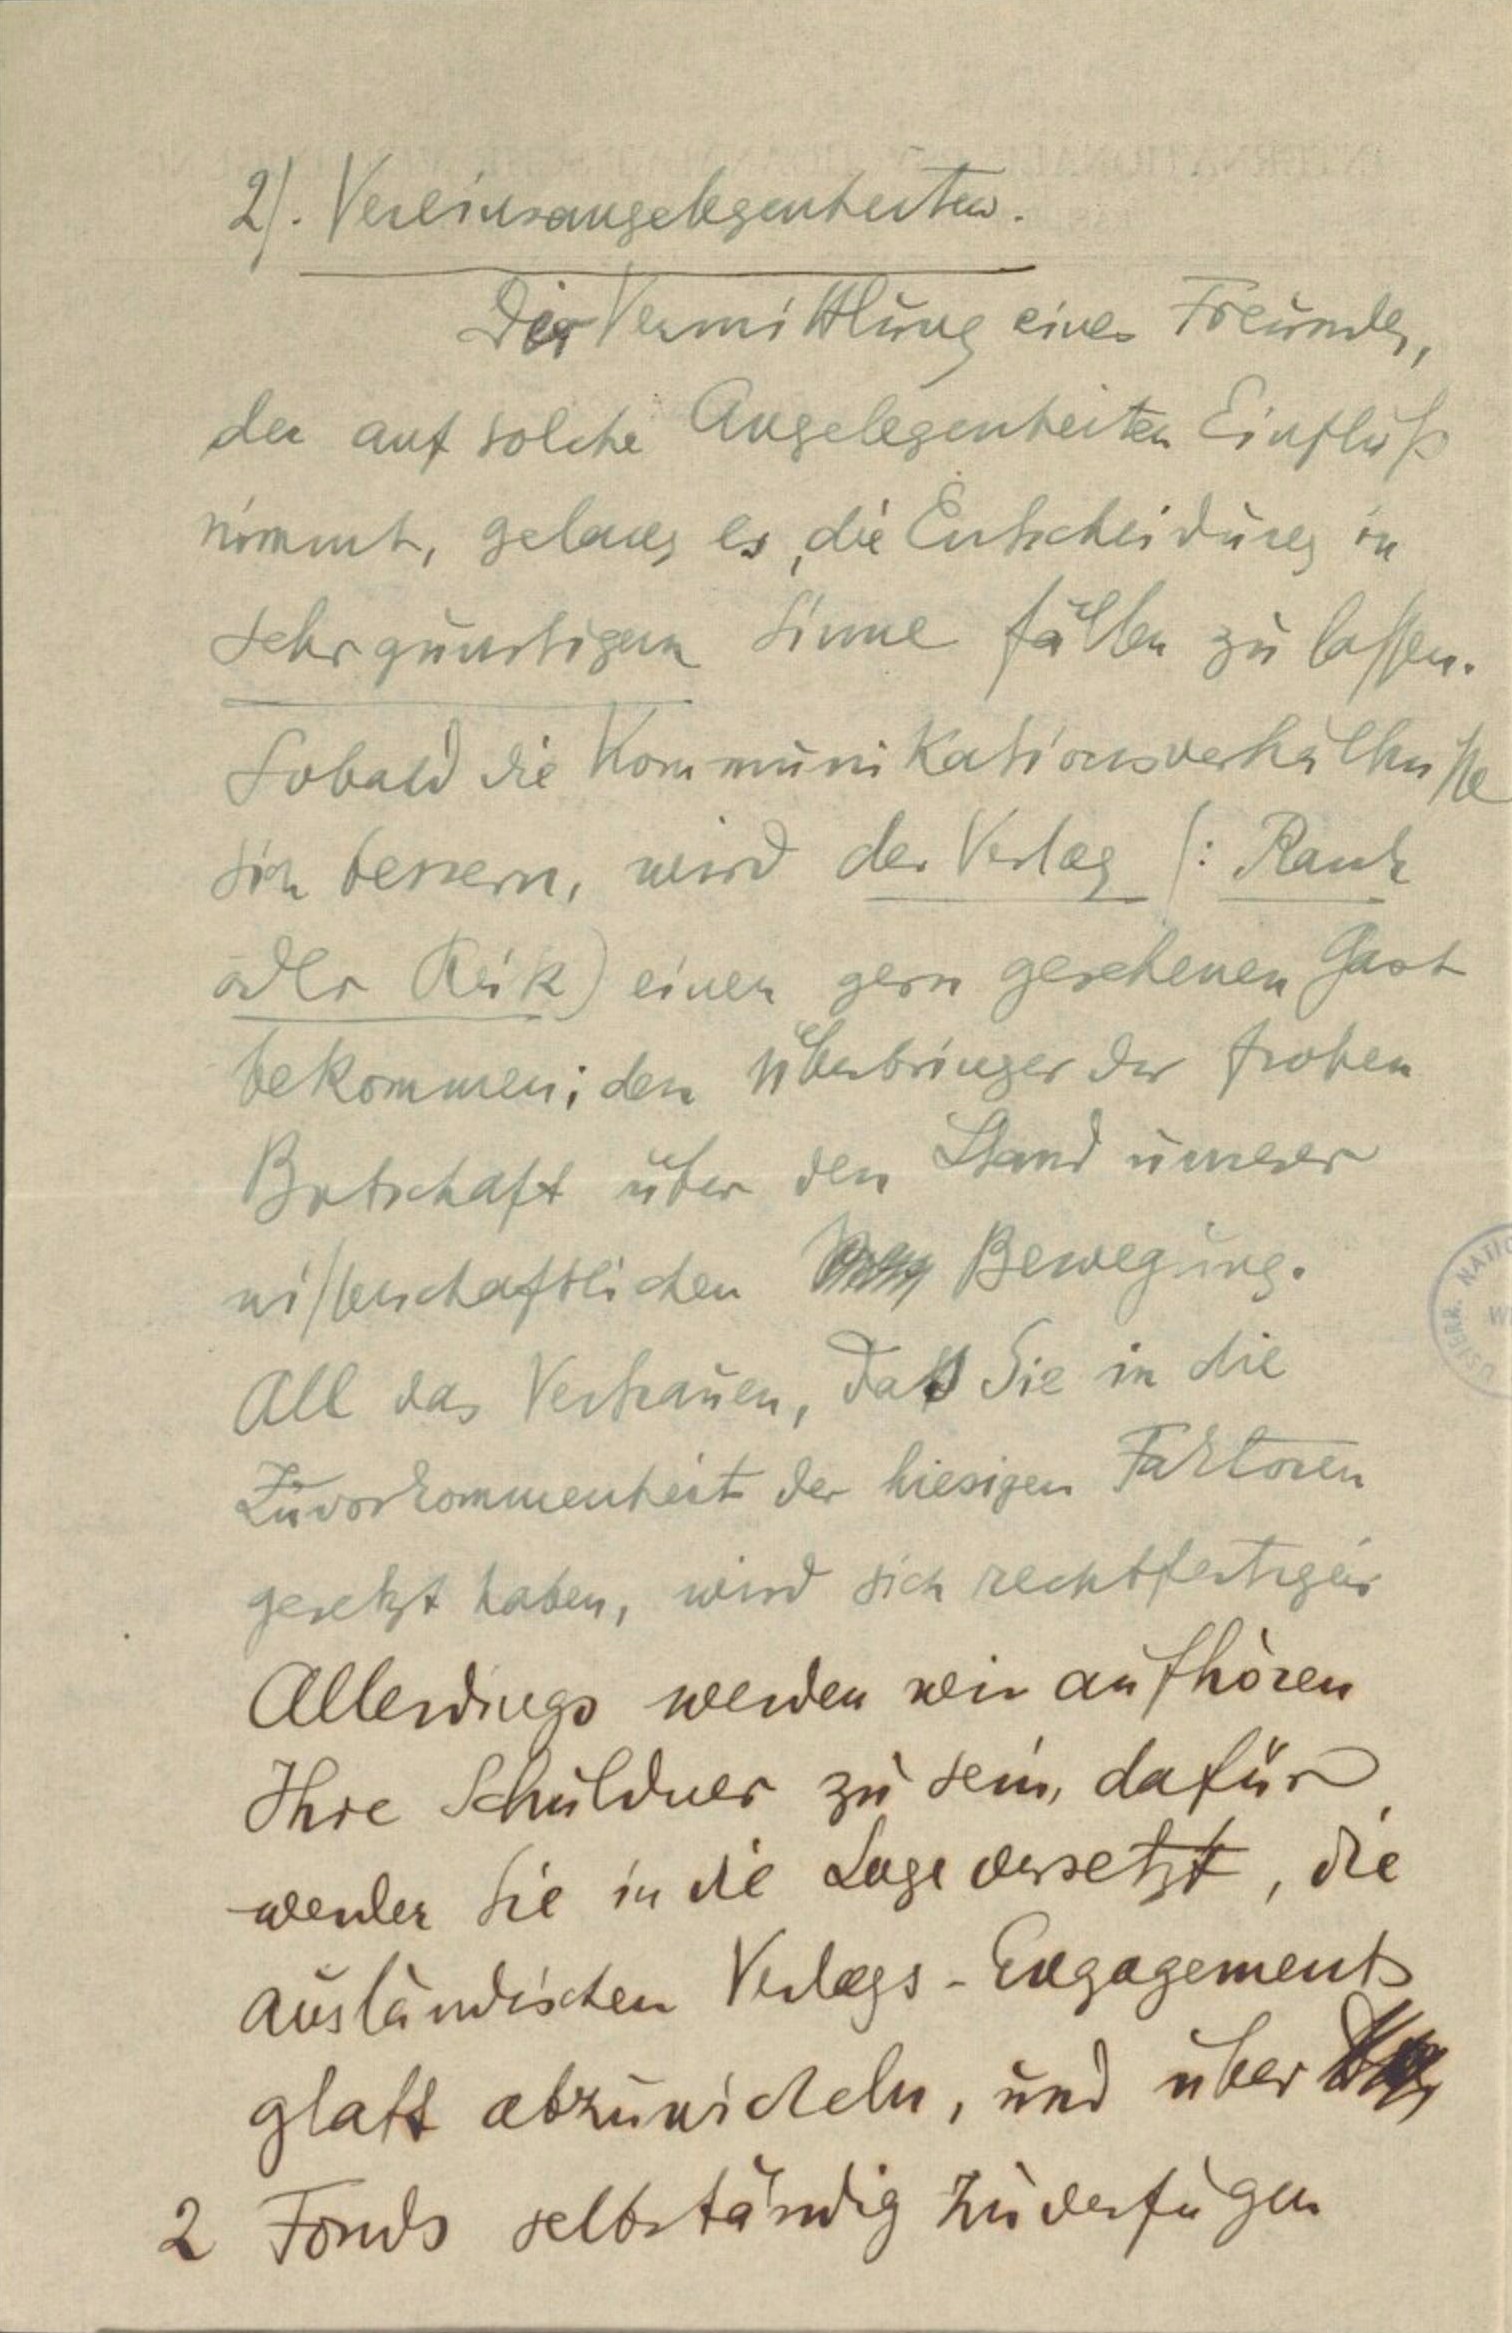 2). Vereinsangelegenheiten.
Der Vermittlung eines Freundes,
der auf solche Angelegenheiten Einfluß
nimmt, gelang es, die Entscheidung in
sehr günstigem Sinne fällen zu lassen.
Sobald die Kommunikationsverhältnisse
sich bessern, wird der Verlag (: Rank
oder Reik) einen gern gesehenen Gast
bekommen; den Überbringer der frohen
Botschaft über den Stand unserer
wissenschaftlichen Bewegung.
All das Vertrauen, daß Sie in die
Zuvorkommenheit der hiesigen Faktoren
gesetzt haben, wird sich rechtfertigen
Allerdings werden wir aufhören
Ihre Schuldner zu sein, dafür
werden Sie in die Lage versetzt, die
ausländischen Verlags-Engagements
glatt abzuwickeln, und über
2 Fonds selbständig zu verfügen